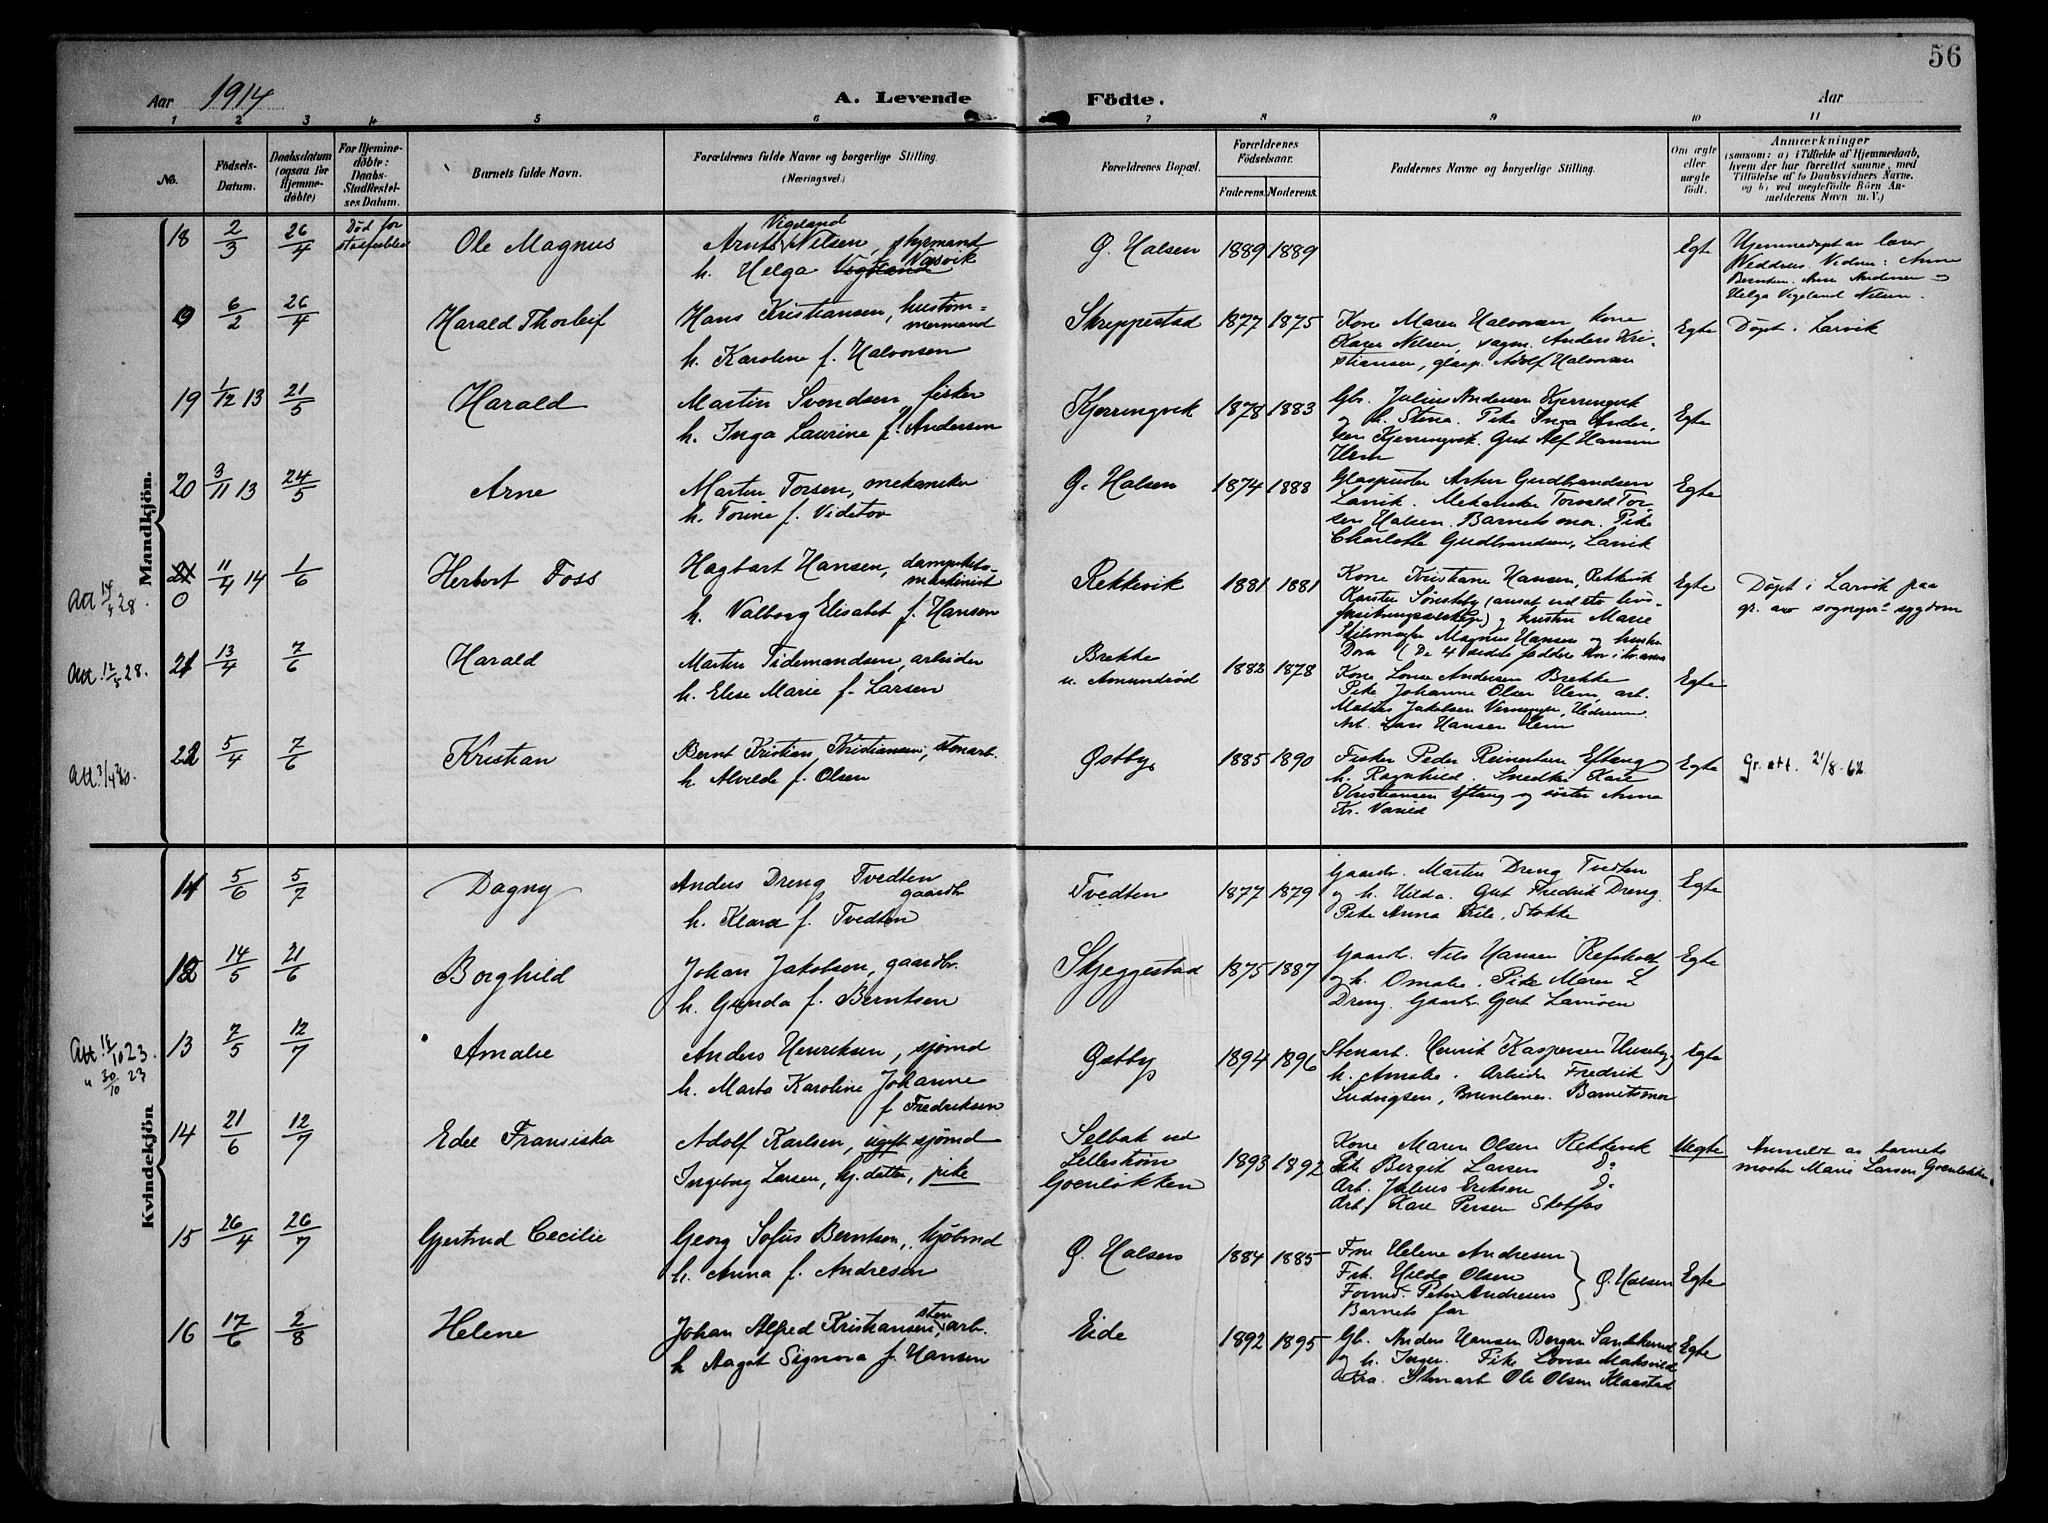 56
Aar 1914
A. Levende Födte.
Aar
1 2 3 4 5 6 7 8 9 10 11
No.
Födsels-Datum.
Daabsdatum (ogsaa for Hjemmedöbte)
For Hjemmedöbte: Daabs-Stadfæstelses Datum.
Barnets fulde Navn.
Forældrenes fulde Navne og borgerlige Stilling. (Næringsvei.)
Forældrenes Bopæl.
Forældrenes Födselsaar.
Faderens. Moderens.
Faddernes Navne og borgerlige Stilling.
Om ægte eller uægte födt.
Anmærkninger
(saasom: a) i Tilfælde af Hjemmedaab, hvem der har forrettet samme, med Tilföielse af to Daabsvidners Navne, og b) ved uægtefödte Börn Anmelderens Navn m. V.)
Mandkjön.
18 2/3 26/4 Død før Ole Magnus
Vigeland
Arnts Nilsen, styrmand
h. Helga Vigeland Næsvik
Ø. Halsen 1889 1889 Egte
Hjemmedøpt av lærer
Helga Vigeland Nilsen.
0 6/2 26/4 Harald Thorleif
Hans Kristiansen, hustøm=
mermand
h. Karoline f. Halvorsen
Skreppestad 1877 1875
Kone Maren Halvorsen kone
Karen Nilsen, sagm. Anders Kri-
stiansen, glasp. Adolf Halvorsen
Egte Døpt i Larvik
19 1/12 13 21/5 Harald
Martin Svendsen, fisker
h. Inga Laurine f. Andersen
Kjerringvik 1878 1883
Gb. Julius Andersen Kjerringvik
og h. Stina. Pike Inga Ander,
sen Kjerringvik. Gut Alf Hansen
Hem
Egte
20 3/11 13 24/5 Arne
Martin Torsen, mekaniker
h. Torine f. Videtov
Ø. Halsen 1874 1888
Glaspuster Artur Gudbrandsen
Larvik. Mekaniker Torvald Tor-
sen Halsen. Barnets mor. Pike
Charlotte Gudbrandsen, Larvik
Egte
Att 14/4 28.
21 0 11/4 14 1/6 Herbert Foss
Hagbart Hansen, dampskibs-
maskinist
h. Valborg Elisabet f. Hansen
Rekkevik 1881 1881
Kone Kristiane Hansen, Rekkevik
Skibsmægler Magnus Hansen og hustru
Dora (De 4 sidste faddere bor i
Egte
Døpt i Larvik paa
gr. av sognepr.s sygdom
Att. 12/5 28.
21 13/4 7/6 Harald
Martin Tidemandsen, arbeider
h. Elise Marie f. Larsen
Brekke
u. Amundrød
1883 1878
Kone Lovise Andersen Brekke
Pike Johanne Olsen Hem, arb.
Arb. Lars Hansen Hem
Egte
Att. 3/4 30.
22 5/4 7/6 Kristian
Bernt Kristian Kristiansen, stenarb.
h. Alvilde f. Olsen
Østby 1885 1890
Fisker Peder Reinertsen Eftang
h. Ragnhild. Snedker Kare
Kristiansen Eftang og søster Anna
Kr. Varild
Egte Gr. att. 21/8-62
Kvindekjön
11 5/6 5/7 Dagny
Anders Dreng Tvedten
gaardbr
h. Klara f. Tvedten
Tvedten 1877 1879
Gaardbr. Martin Dreng Tvedten
og h. Hilda. Gut Fredrik Dreng.
Pike Anna Kile, Stokke
Egte
12 14/5 21/6 Borghild
Johan Jakobsen, gaardbr.
h. Gunda f. Berntsen
Skjeggestad 1875 1887
Gaardb. Nils Hansen Refsholt
og h. Omalie. Pike Maren L
Dreng. Gaardb. Gjert Lamøen
Egte
Att. 14/10 23.
" 30/10 23
13 7/5 12/7 Amalie
Anders Henriksen, sjømd
h. Marta Karoline Johanne
f. Fredriksen
Østby 1894 1896
Stenarb. Henrik Kaspersen Huseby og
h. Amalie. Arbeider Fredrik
Ludvigsen, Brunlanes. Barnets mor
Egte
14 21/6 12/7 Edel Fransiska
Adolf Karlsen, ugift sjømd
Ingeborg Larsen, hj. datter, pike
Selbak ved
Lillestrøm
Goenløkken
1893 1892
Kone Maren Olsen Rekkevik
Pike Bergit Larsen do
Arb. Julius Eriksen do
Arb. Kare Persen Slotfos
Uegte
Anmeldt av barnets
moster Marie Larsen Goenløkken
15 26/4 26/7 Gjertrud Cecilie
Georg Sofus Berntsen, kjøbmd
h. Anna f. Andresen
Ø. Halsen 1884 1885
Fru Helene Andresen
Frk. Hilda Olsen
Formd. Peter Andresen
Barnets far
Ø. Halsen Egte
16 17/6 2/8 Helene
Johan Alfred Kristiansen, stenarb.
h Aagot Signora f. Hansen
Eide 1892 1895
Gb. Anders Hansen Bergan Sandeherred
og h. Inger. Pike Lovise Maksvild
Kra. Stenarb Ole Olsen Klaastad
Egte